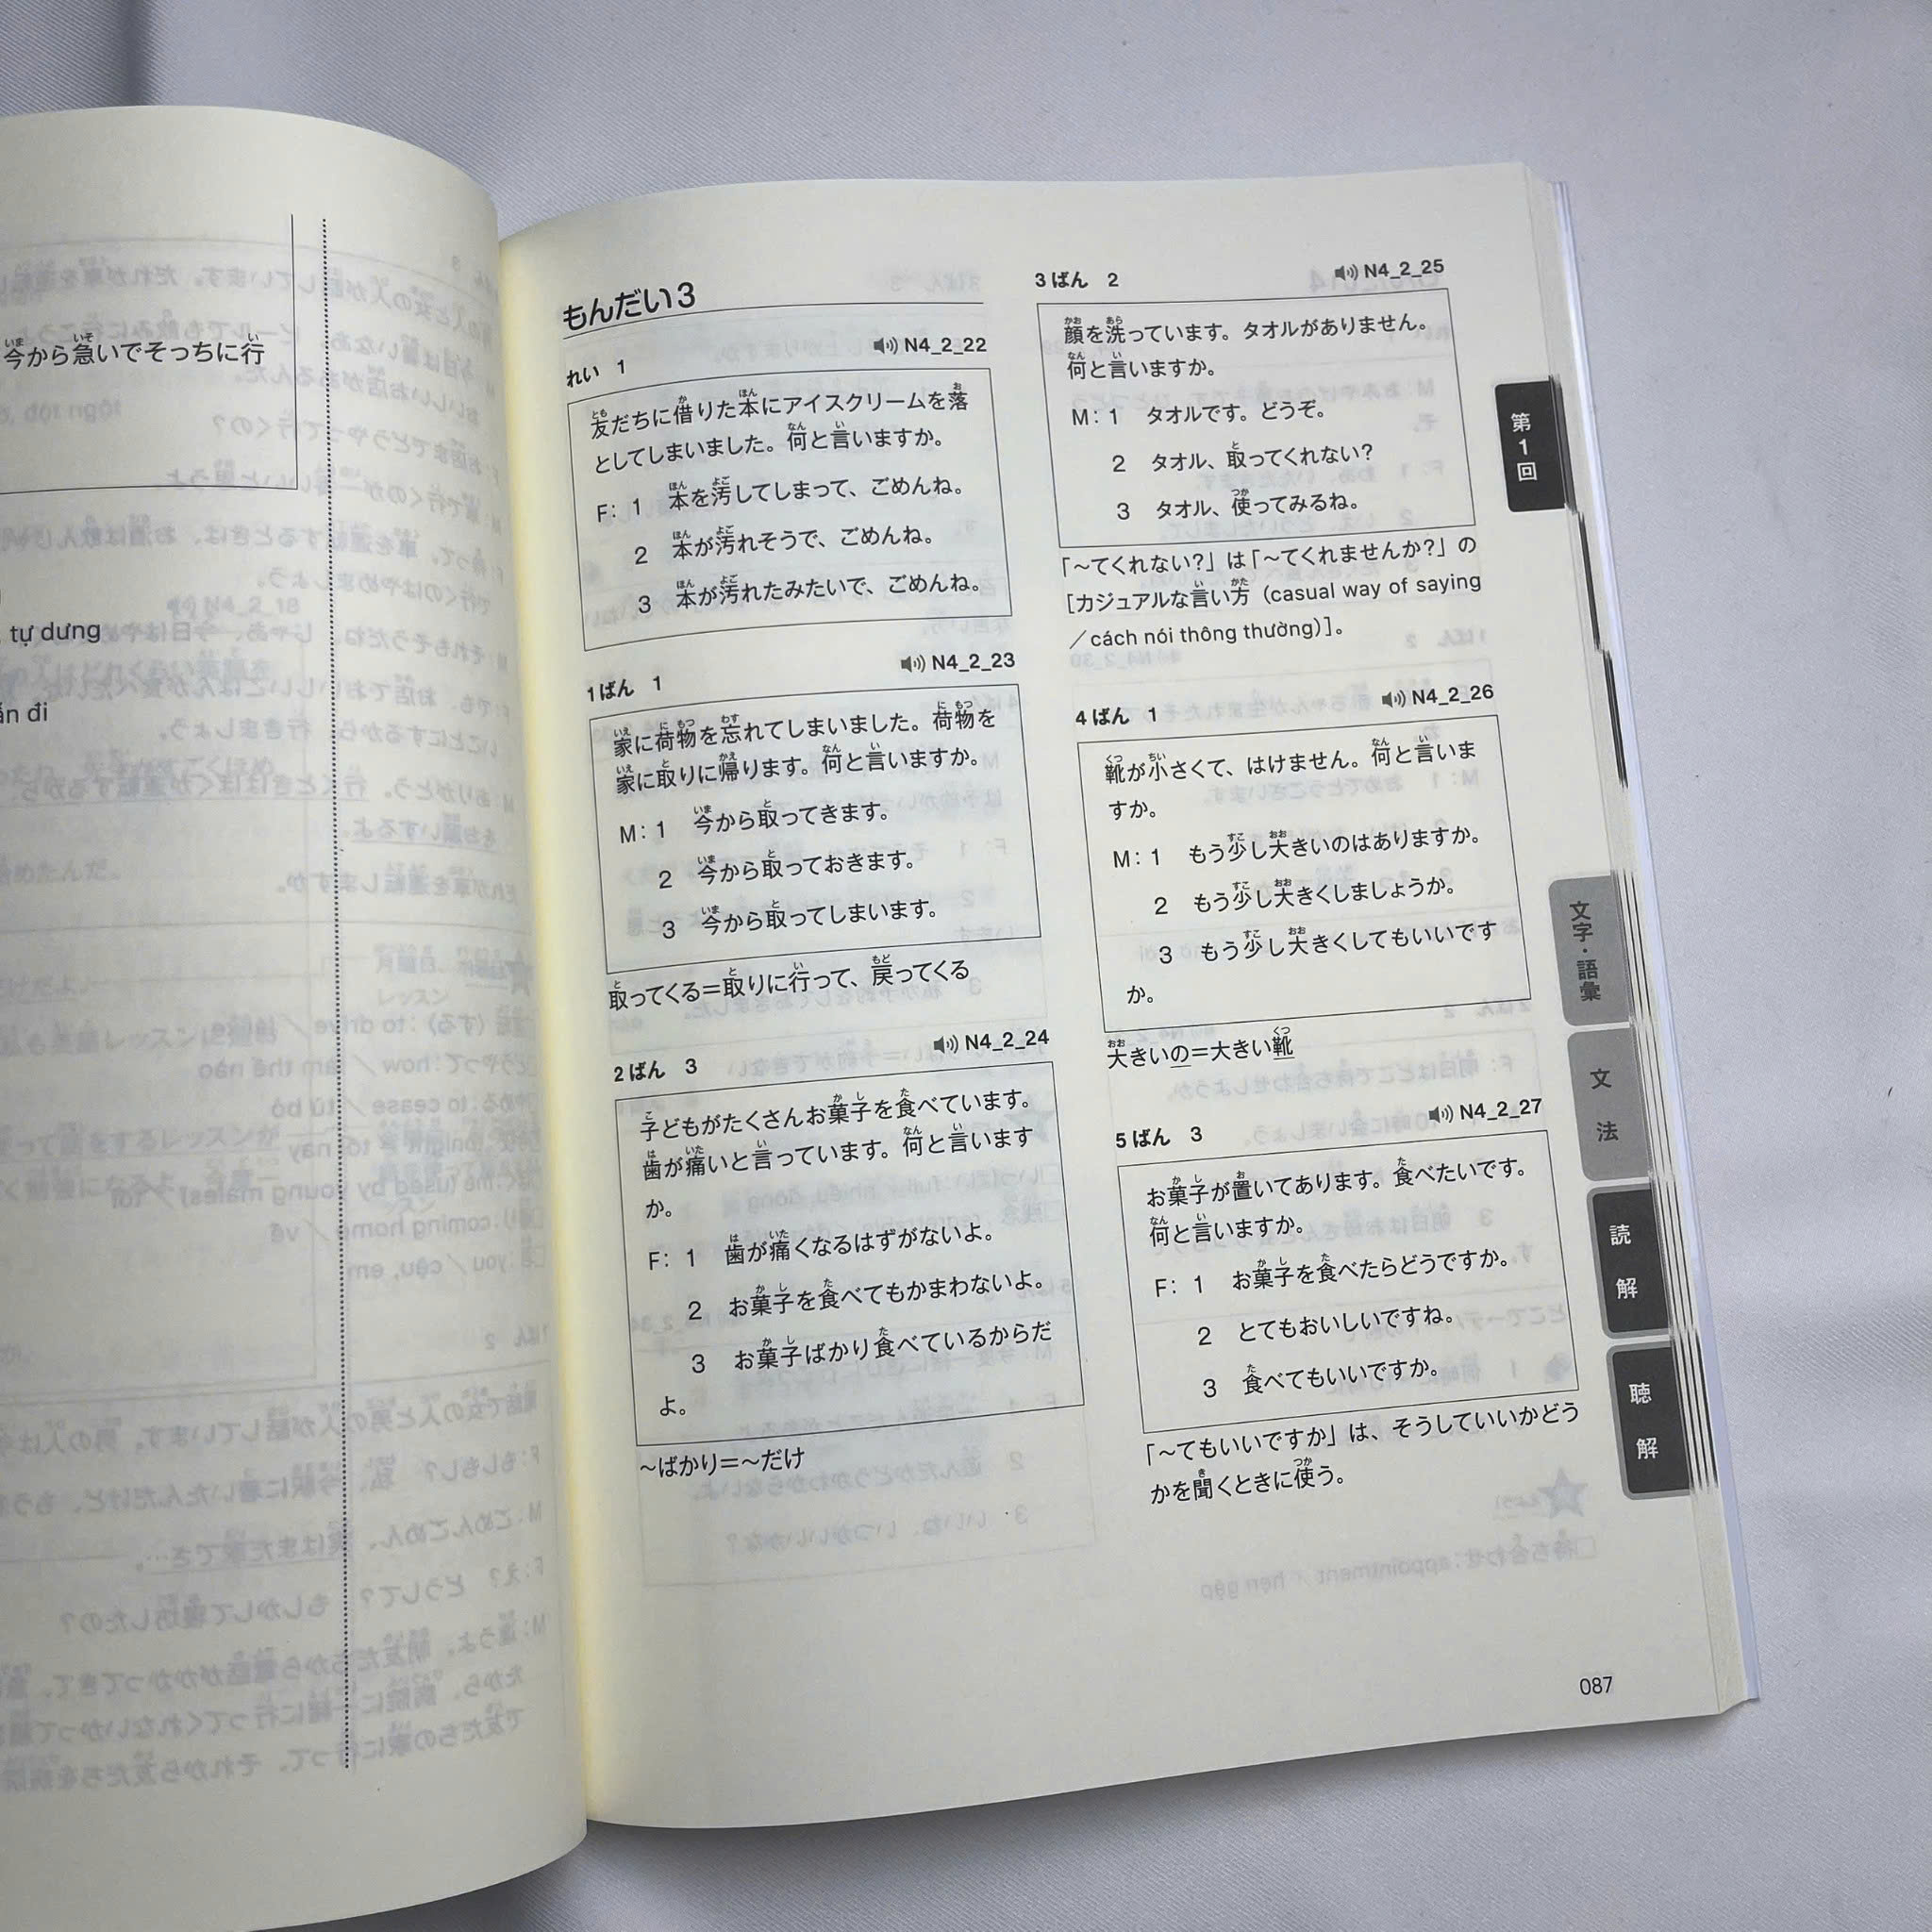 今から急いでそっちに行
tự dưng
ẩn đi
もんだい3
れい 1
N4_2_22
友だちに借りた本にアイスクリームを落
としてしまいました。何と言いますか。
F: 1 本を汚してしまって、ごめんね。
2 本が汚れそうで、ごめんね。
3 本が汚れたみたいで、ごめんね。
1ばん 1
N4_2_23
家に荷物を忘れてしまいました。荷物を
家に取りに帰ります。何と言いますか。
M: 1 今から取ってきます。
2 今から取っておきます。
3 今から取ってしまいます。
取ってくる=取りに行って、戻ってくる
2ばん 3
N4_2_24
子どもがたくさんお菓子を食べています。
歯が痛いと言っています。何と言います
か。
F: 1 歯が痛くなるはずがないよ。
2 お菓子を食べてもかまわないよ。
3 お菓子ばかり食べているからだ
よ。
~ばかり=~だけ
3ばん 2
N4_2_25
顔を洗っています。タオルがありません。
何と言いますか。
M: 1 タオルです。どうぞ。
2 タオル、取ってくれない?
3 タオル、使ってみるね。
「~てくれない?」は「~てくれませんか?」の
[カジュアルな言い方(casual way of saying
/cách nói thông thường)]。
4ばん 1
N4_2_26
靴が小さくて、はけません。何と言いま
すか。
M: 1 もう少し大きいのはありますか。
2 もう少し大きくしましょうか。
3 もう少し大きくしてもいいです
か。
大きいの=大きい靴
5ばん 3
N4_2_27
お菓子が置いてあります。食べたいです。
何と言いますか。
F: 1 お菓子を食べたらどうですか。
2 とてもおいしいですね。
3 食べてもいいですか。
「~てもいいですか」は、そうしていいかどう
かを聞くときに使う。
第1回
文字・語彙
文法
読解
聴解
087